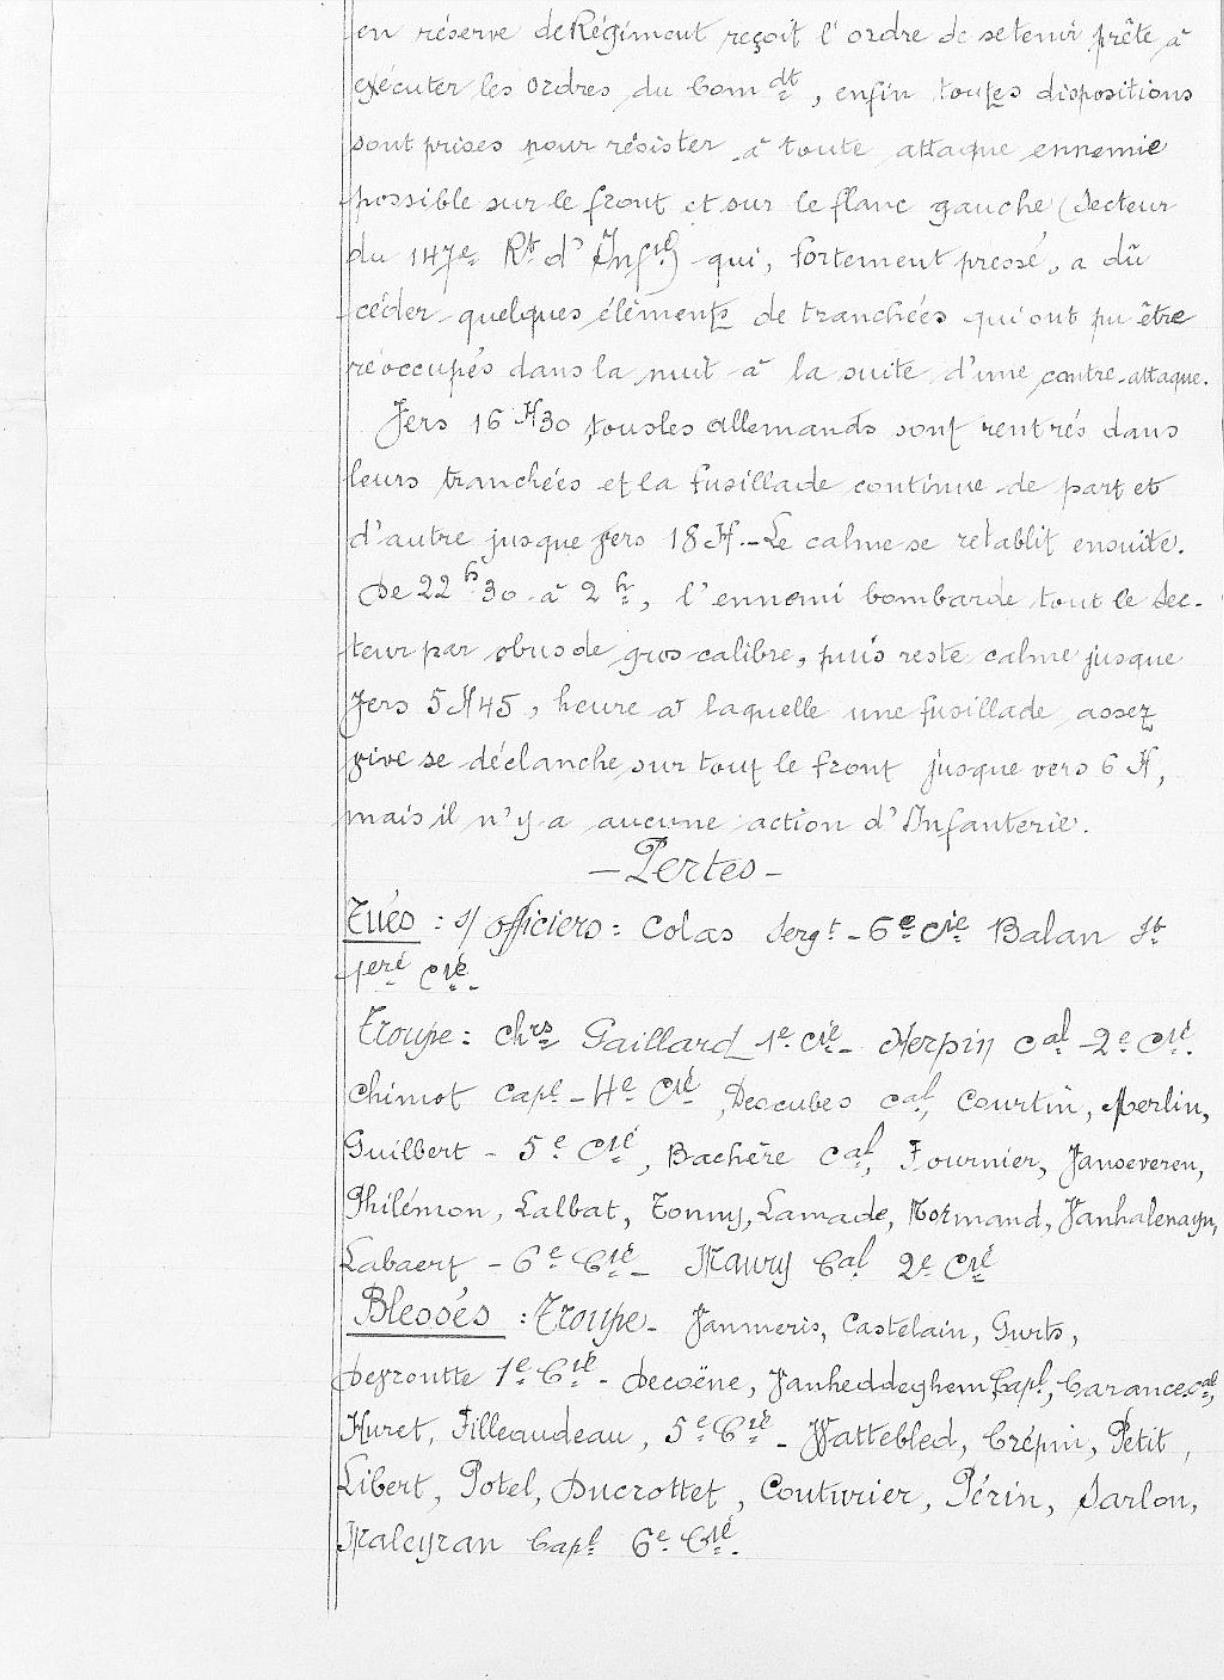 en réserve de Régiment reçoit l'ordre de se tenir prête à
exécuter les ordres du Com dt, enfin toutes dispositions
sont prises pour résister à toute attaque ennemie
possible sur le front et sur le flanc gauche (Secteur
du 147e Rt d'Infie) qui, fortement pressé, a dû
céder quelques éléments de tranchées qui ont pu être
réoccupés dans la nuit à la suite d'une contre-attaque.
Vers 16 H30 tous les allemands sont rentrés dans
leurs tranchées et la fusillade continue de part et
d'autre jusque vers 18 H.- Le calme se rétablit ensuite.
De 22 h 30 à 2 h, l'ennemi bombarde tout le Sec-
teur par obus de gros calibre, puis reste calme jusque
vers 5 H45, heure à laquelle une fusillade assez
vive se déclanche sur tout le front jusque vers 6 H,
mais il n'y a aucune action d'Infanterie.
- Pertes -
Tués : s/ officiers : Colas Sergt - 6e Cie Balan St
1ere Cie
Troupe : Chrs Gaillard 1e Cie - Herpin Cal - 2e Cie
Chimot Capl - 4e Cie, Descubes Cal, Courtin, Merlin,
Guilbert - 5e Cie, Bachère Cal, Fournier, Vanseveren,
Philémon, Lalbat, Tonny, Lamade, Normand,
Labaert - 6e Cie - Maury Cal 2e Cie
Blessés : Troupe - Vanmeris, Castelain, Gurts,
Deyroutte 1e Cie - Decoëne, Vanheddeghem Capl, Carance Cal,
Huret, Filleaudeau, 5e Cie - Wattebled, Crépin, Petit,
Libert, Potel, Ducrottet, Couturier, Périn, Sarlon,
Maleyran Capl 6e Cie.